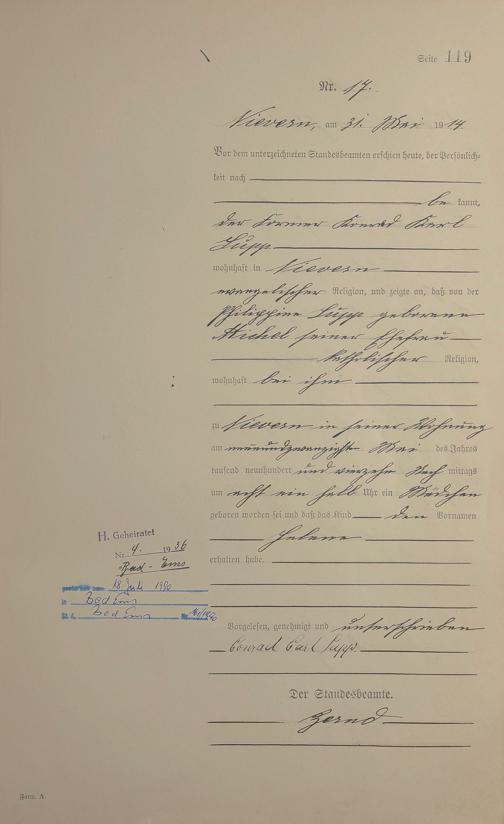 Seite 119
Nr. 17.
Nievern, am 31. Mai 1914.
Vor dem unterzeichneten Standesbeamten erschien heute, der Persönlich-
keit nach
be kannt,
der Former Konrad Karl
Supp
wohnhaft in Nievern
evangelischer Religion, und zeigte an, daß von der
Philippine Supp geborene
Michel seiner Ehefrau
katholischer Religion,
wohnhaft bei ihm
zu Nievern in seiner Wohnung
am neunundzwanzigsten Mai des Jahres
tausend neunhundert und vierzehn Nach mittags
um acht ein halb Uhr ein Mädchen
geboren worden sei und daß das Kind den Vornamen
Helene
erhalten habe.
H. Geheiratet
Nr. 4. 1936
Bad-Ems
18. Juli 1990
in Bad Ems
Bad Ems
Vorgelesen, genehmigt und unterschrieben
Conrad Carl Supp
Der Standesbeamte.
Form. A.